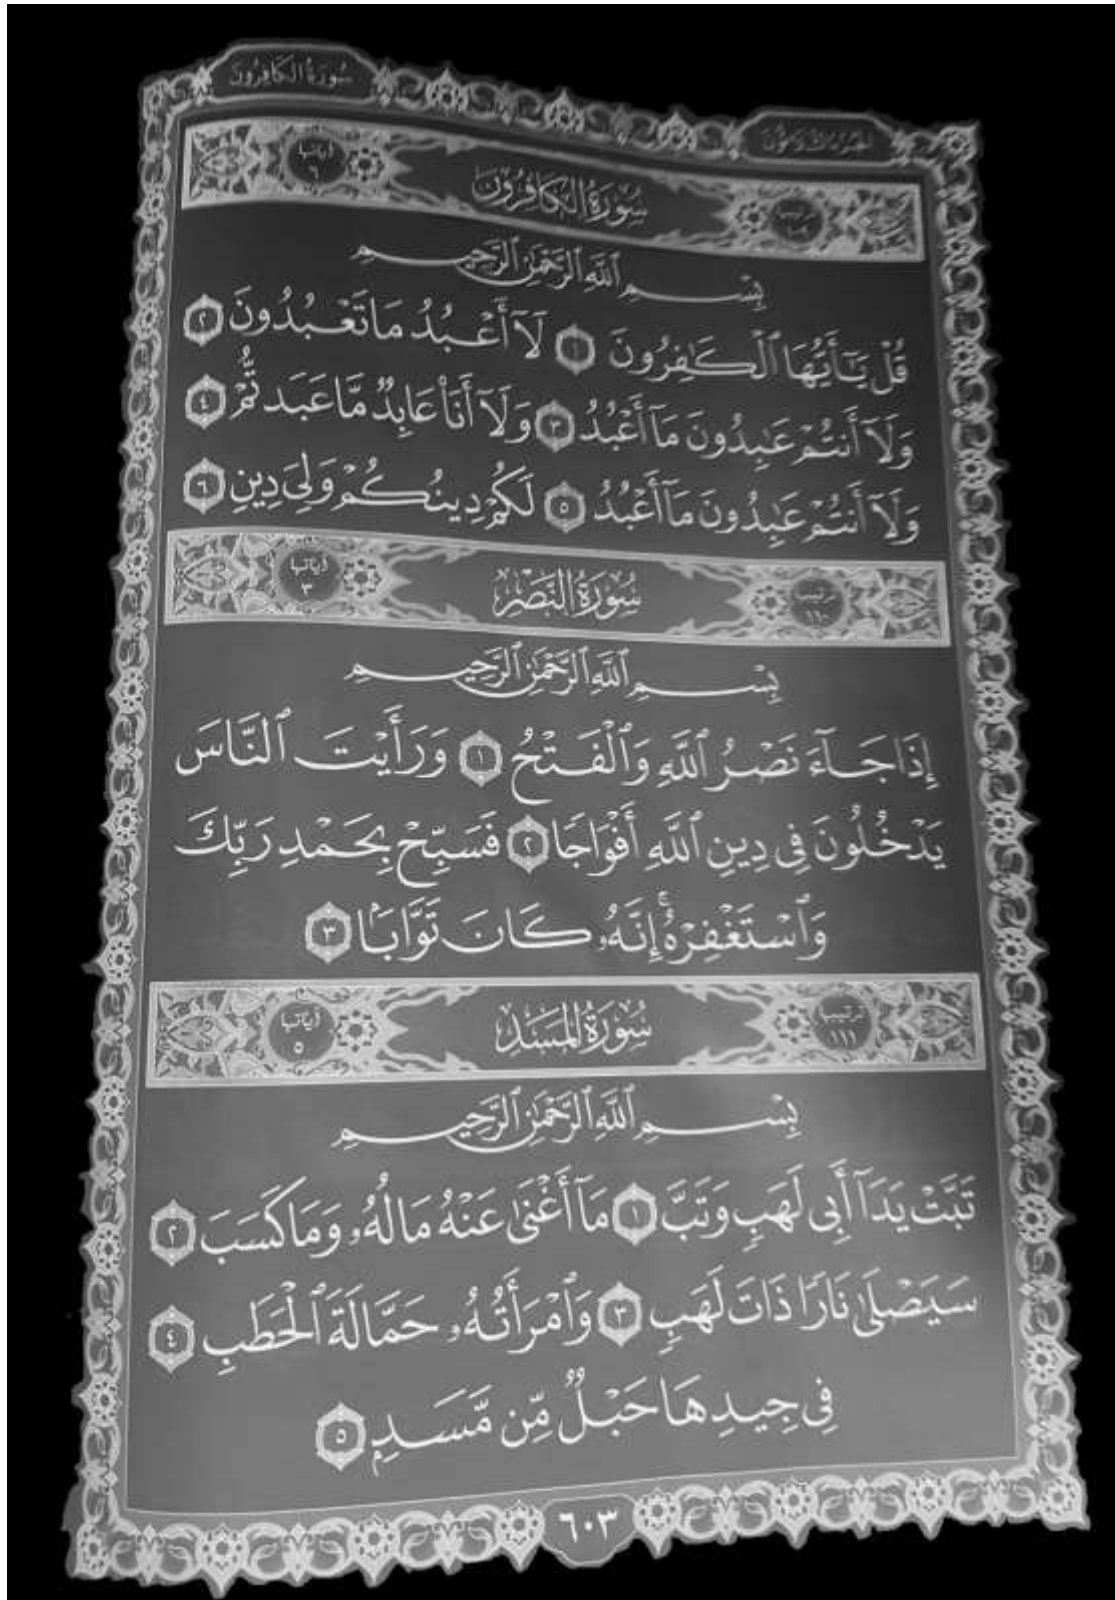 سُورَةُ الكَافِرُونَ
الجُزءُ الثَّلَاثُونَ
ترتيبها ١٠٩ سُورَةُ الكَافِرُونَ آياتها ٦
بِسْمِ ٱللَّهِ ٱلرَّحْمَٰنِ ٱلرَّحِيمِ
قُلْ يَـٰٓأَيُّهَا ٱلْكَـٰفِرُونَ ١ لَآ أَعْبُدُ مَا تَعْبُدُونَ ٢
وَلَآ أَنتُمْ عَـٰبِدُونَ مَآ أَعْبُدُ ٣ وَلَآ أَنَا۠ عَابِدٌ مَّا عَبَدتُّمْ ٤
وَلَآ أَنتُمْ عَـٰبِدُونَ مَآ أَعْبُدُ ٥ لَكُمْ دِينُكُمْ وَلِىَ دِينِ ٦
ترتيبها ١١٠ سُورَةُ النَّصْرِ آياتها ٣
بِسْمِ ٱللَّهِ ٱلرَّحْمَٰنِ ٱلرَّحِيمِ
إِذَا جَآءَ نَصْرُ ٱللَّهِ وَٱلْفَتْحُ ١ وَرَأَيْتَ ٱلنَّاسَ
يَدْخُلُونَ فِى دِينِ ٱللَّهِ أَفْوَاجًا ٢ فَسَبِّحْ بِحَمْدِ رَبِّكَ
وَٱسْتَغْفِرْهُ ۚ إِنَّهُۥ كَانَ تَوَّابًۢا ٣
ترتيبها ١١١ سُورَةُ المَسَدِ آياتها ٥
بِسْمِ ٱللَّهِ ٱلرَّحْمَٰنِ ٱلرَّحِيمِ
تَبَّتْ يَدَآ أَبِى لَهَبٍ وَتَبَّ ١ مَآ أَغْنَىٰ عَنْهُ مَالُهُۥ وَمَا كَسَبَ ٢
سَيَصْلَىٰ نَارًا ذَاتَ لَهَبٍ ٣ وَٱمْرَأَتُهُۥ حَمَّالَةَ ٱلْحَطَبِ ٤
فِى جِيدِهَا حَبْلٌ مِّن مَّسَدٍۭ ٥
٦٠٣